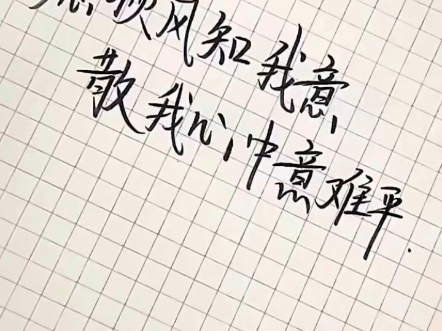 风知我意
散我心中意难平.